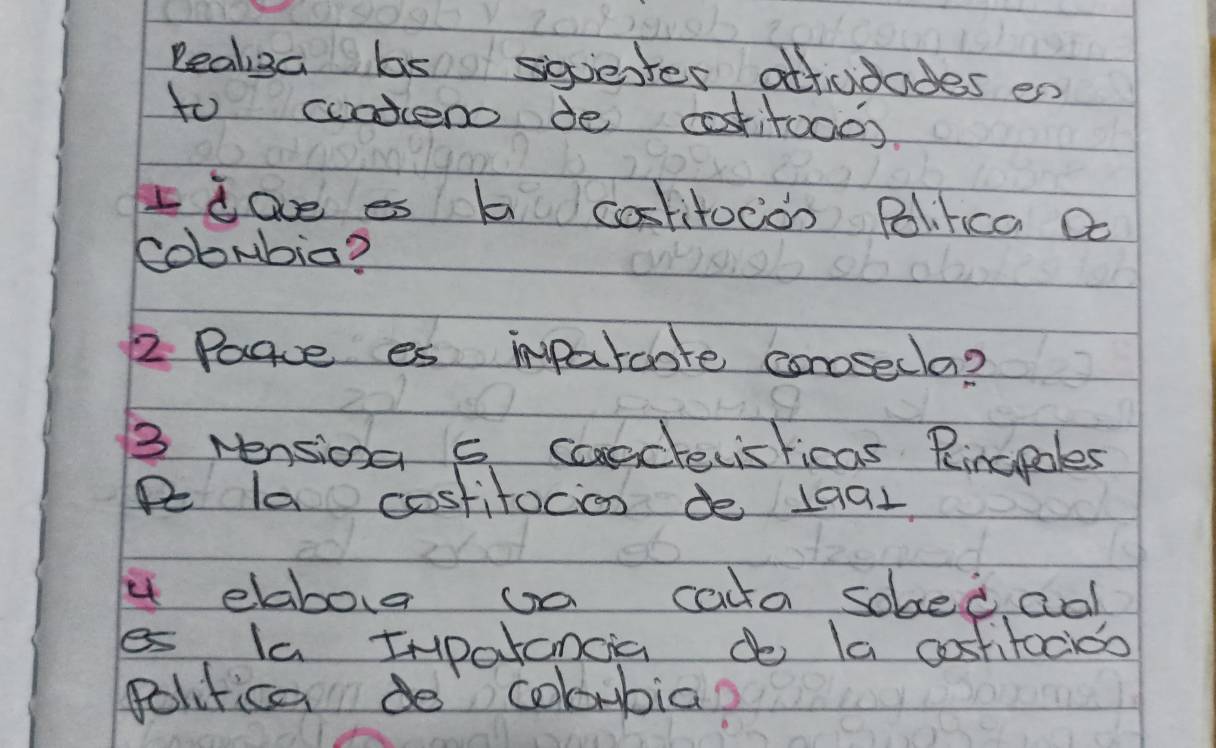 Realiza las siguientes attividades en
tu cuaderno de costitoción.
1 ¿Que es la costitoción Politica De
colombia?
2 Poque es impartante conoserla?
3 Mensiona 5 caracteristicas Principales
De la costitocion de 1991.
4 elabora una carta sobre ¿cual
es la Impartancia de la costitoción
Politica de colombia?